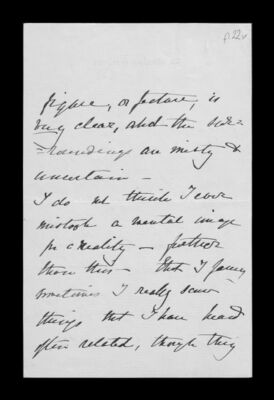 p.22v
figure, or picture, is
very clear, and the sur=
=roundings are misty &
uncertain –
I do not think I ever
mistook a mental image
for a reality – further
than this – that I fancy
sometimes I really saw
things that I have heard
often related, though they